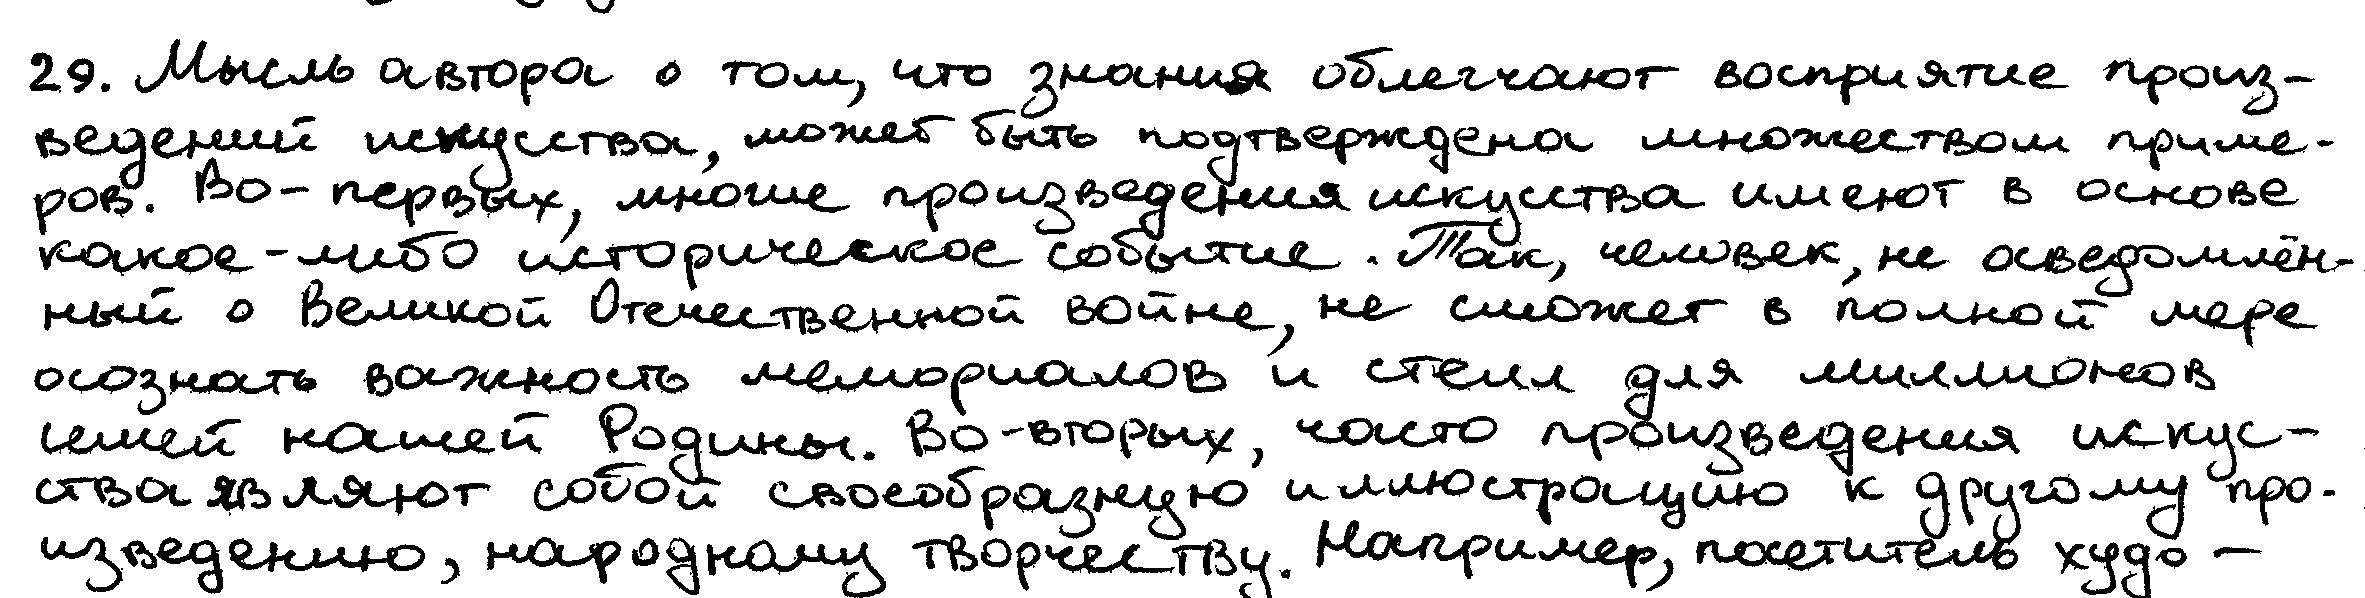 29. Мысль автора о том, что знания облегчают восприятие произ-
ведений искусства, может быть подтверждена множеством приме-
ров. Во-первых, многие произведения искусства имеют в основе
какое-либо историческое событие. Так, человек, не осведомлён-
ный о Великой Отечественной войне, не сможет в полной мере
осознать важность мемориалов и стелл для миллионов
семей нашей Родины. Во-вторых, часто произведения искус-
ства являют собой своеобразную иллюстрацию к другому про-
изведению, народному творчеству. Например, посетитель худо-